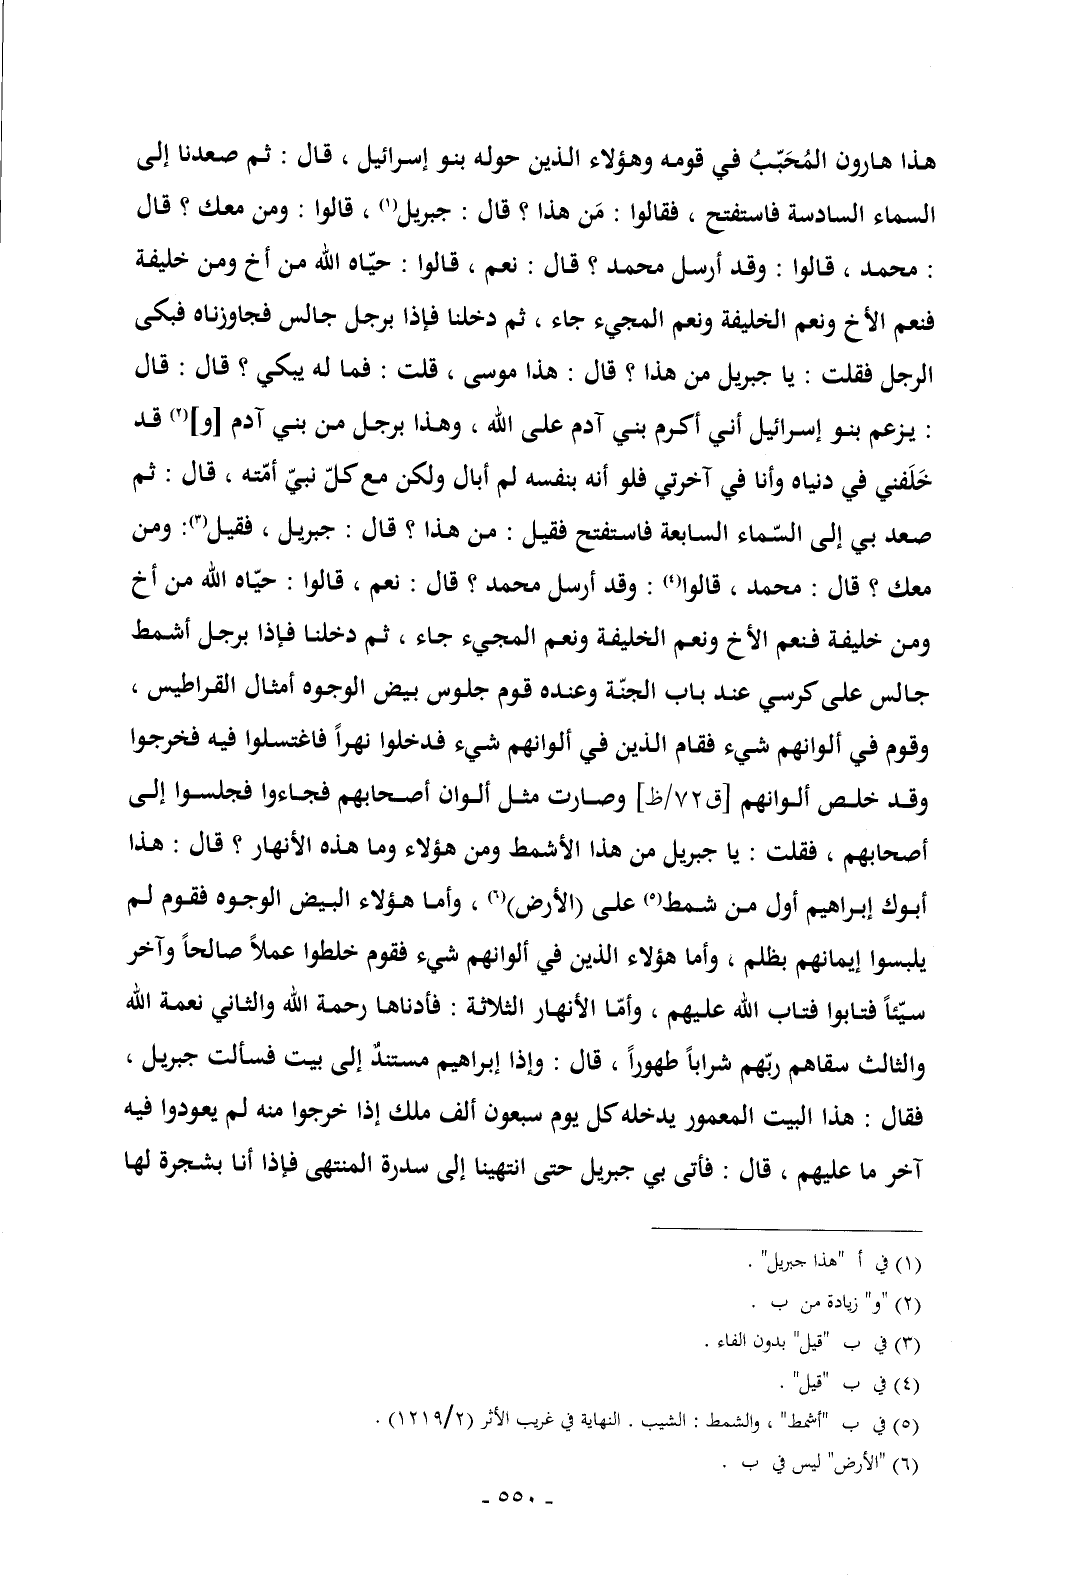 هذا هارون المُحَبّبُ في قومه وهؤلاء الذين حوله بنو إسرائيل ، قال : ثم صعدنا إلى
السماء السادسة فاستفتح ، فقالوا : مَن هذا ؟ قال : جبريل(١) ، قالوا : ومن معك ؟ قال
: محمد ، قالوا : وقد أرسل محمد ؟ قال : نعم ، قالوا : حيّاه الله من أخ ومن خليفة
فنعم الأخ ونعم الخليفة ونعم المجيء جاء ، ثم دخلنا فإذا برجل جالس فجاوزناه فبكى
الرجل فقلت : يا جبريل من هذا ؟ قال : هذا موسى ، قلت : فما له يبكي ؟ قال : قال
: يزعم بنو إسرائيل أني أكرم بني آدم على الله ، وهذا برجل من بني آدم [و](٢) قد
خَلَفني في دنياه وأنا في آخرتي فلو أنه بنفسه لم أبال ولكن مع كلّ نبيّ أمّته ، قال : ثم
صعد بي إلى السّماء السابعة فاستفتح فقيل : من هذا ؟ قال : جبريل ، فقيل(٣): ومن
معك ؟ قال : محمد ، قالوا(٤) : وقد أرسل محمد ؟ قال : نعم ، قالوا : حيّاه الله من أخ
ومن خليفة فنعم الأخ ونعم الخليفة ونعم المجيء جاء ، ثم دخلنا فإذا برجل أشمط
جالس على كرسي عند باب الجنّة وعنده قوم جلوس بيض الوجوه أمثال القراطيس ،
وقوم في ألوانهم شيء فقام الذين في ألوانهم شيء فدخلوا نهراً فاغتسلوا فيه فخرجوا
وقد خلص ألوانهم [ق٧٢/ظ] وصارت مثل ألوان أصحابهم فجاءوا فجلسوا إلى
أصحابهم ، فقلت : يا جبريل من هذا الأشمط ومن هؤلاء وما هذه الأنهار ؟ قال : هذا
أبوك إبراهيم أول من شمط(٥) على (الأرض)(٦) ، وأما هؤلاء البيض الوجوه فقوم لم
يلبسوا إيمانهم بظلم ، وأما هؤلاء الذين في ألوانهم شيء فقوم خلطوا عملاً صالحاً وآخر
سيّئاً فتابوا فتاب الله عليهم ، وأمّا الأنهار الثلاثة : فأدناها رحمة الله والثاني نعمة الله
والثالث سقاهم ربّهم شراباً طهوراً ، قال : وإذا إبراهيم مستندٌ إلى بيت فسألت جبريل ،
فقال : هذا البيت المعمور يدخله كل يوم سبعون ألف ملك إذا خرجوا منه لم يعودوا فيه
آخر ما عليهم ، قال : فأتى بي جبريل حتى انتهينا إلى سدرة المنتهى فإذا أنا بشجرة لها
(١) في أ "هذا جبريل" .
(٢) "و" زيادة من ب .
(٣) في ب "قيل" بدون الفاء .
(٤) في ب "قيل" .
(٥) في ب "أشمط" ، والشمط : الشيب . النهاية في غريب الأثر (١٢١٩/٢) .
(٦) "الأرض" ليس في ب .
- ٥٥٠ -